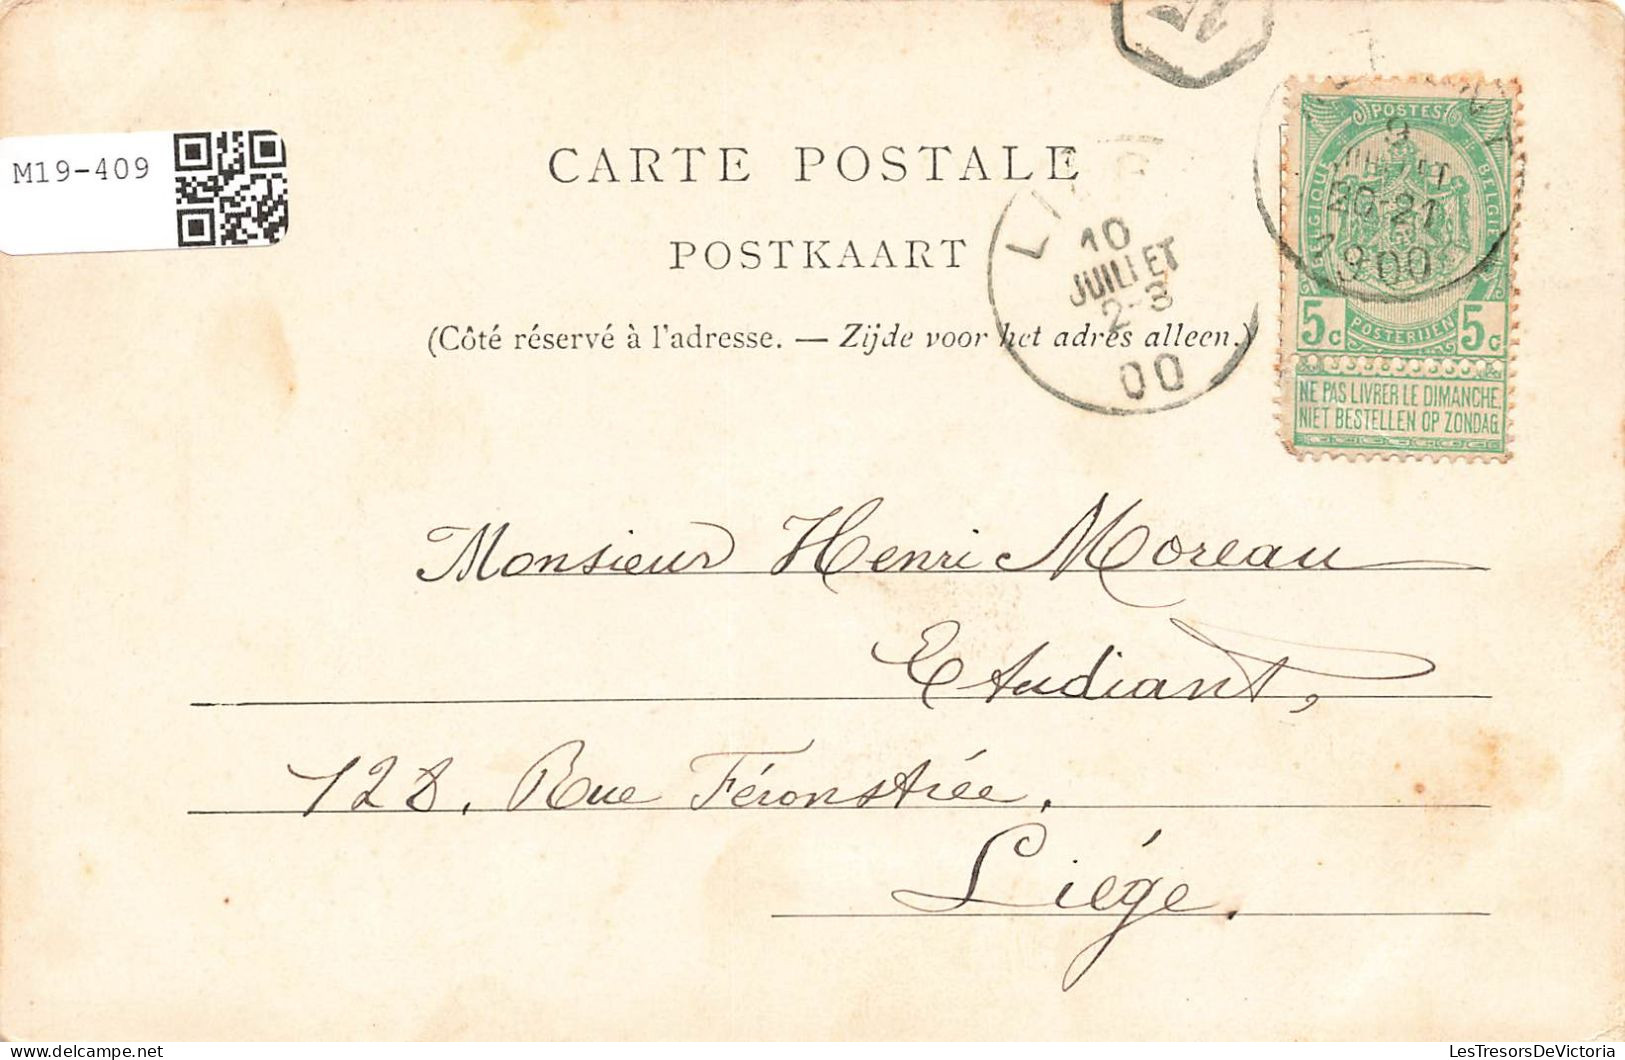 M19-409
CARTE POSTALE
POSTKAART
(Côté réservé à l'adresse. — Zijde voor het adres alleen.)
10
JUILLET
2-3
00
POSTES
BELGIQUE
BELGIË
9
JUILLET
20-21
1900
5c POSTERIJEN 5c
NE PAS LIVRER LE DIMANCHE
NIET BESTELLEN OP ZONDAG
Monsieur Henri Moreau
Etudiant,
128. Rue Féronstrée.
Liége.
LesTresorsDeVictoria